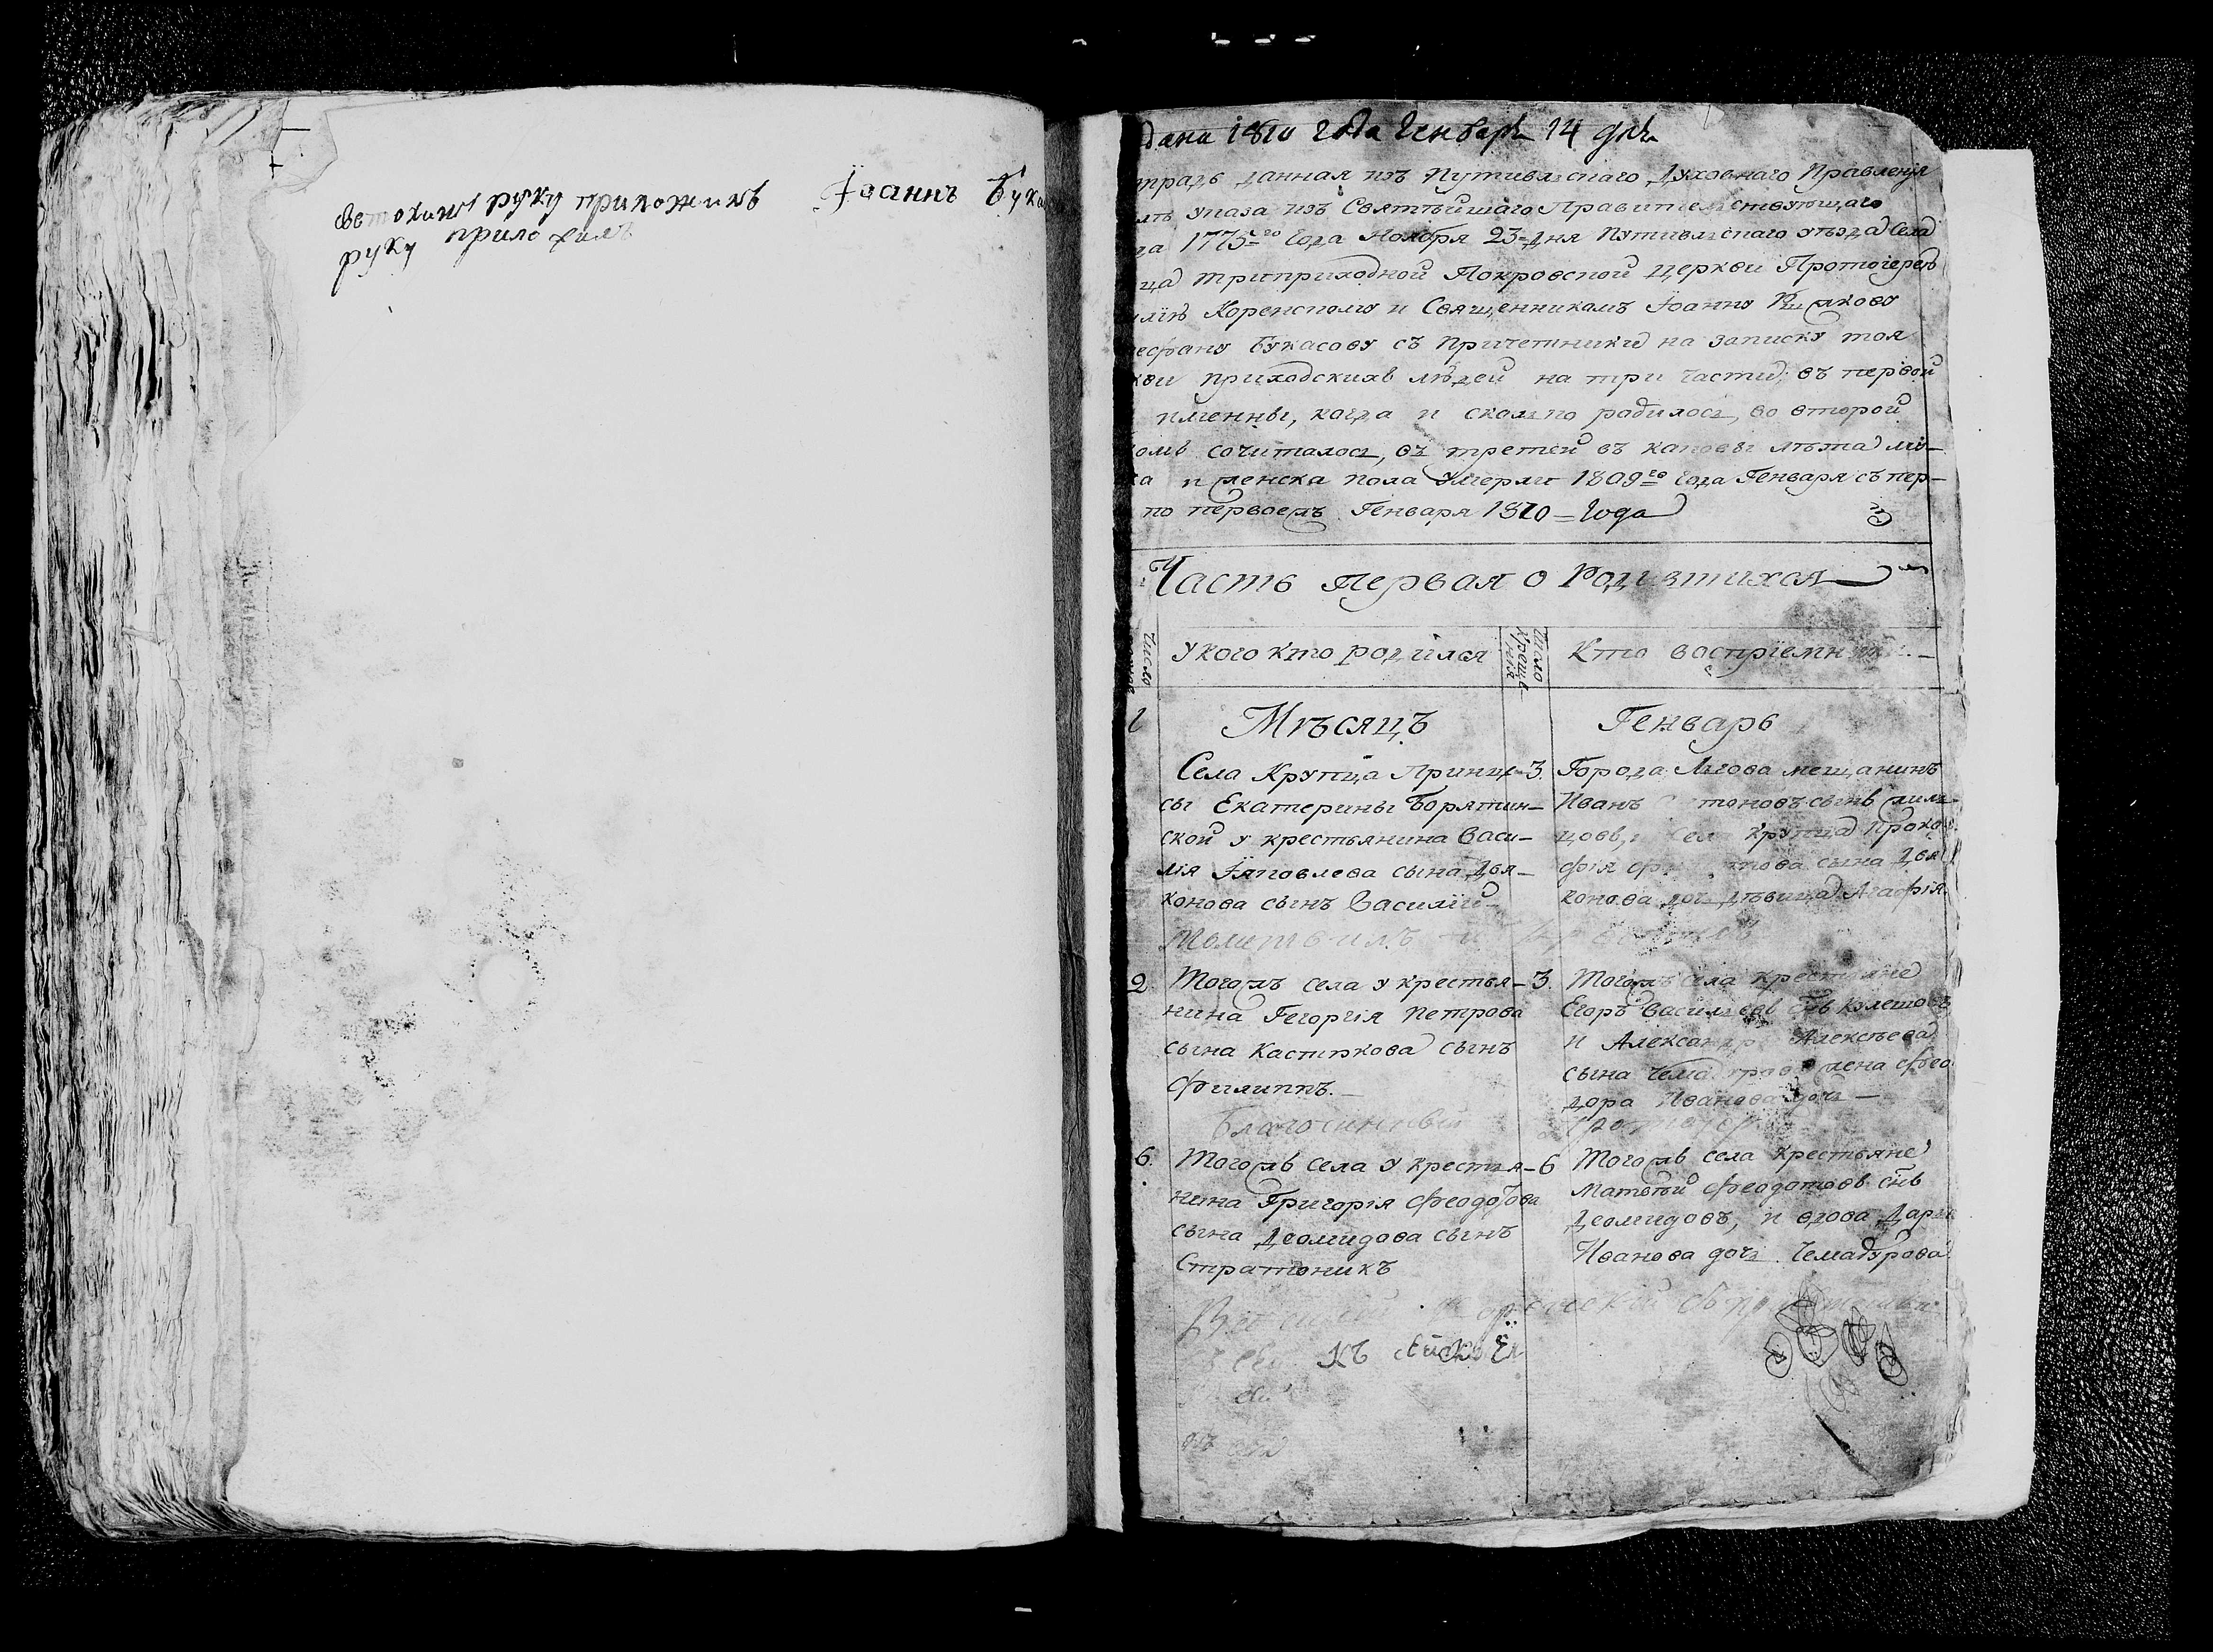 руку приложилъ Іоаннъ
руку приложилъ
дана 1810 года Генваря 14 дня
данная изъ Путивльскаго Духовнаго Правленія
указа изъ Святѣйшаго Правительствующаго
1775го Года Ноября 23 Дня Путивльскаго уѣзда Села
триприходной Покровской церкви Протоіерею
Коренскому и Священникамъ Іоанну
Букасову съ причетники на записку тоя
приходскихъ людей на три части; въ первой
имянны, когда и сколько родилось, во второй
сочиталось, въ третей въ каковы лѣта му-
и женска пола умерли 1809го Года Генваря съ пер-
по первоежъ Генваря 1810 Года
Часть Первая о Родившихся
Число
У кого кто родился
Число Крещенія
Кто воспріемники
Мѣсяцъ
Генварь
1
Села Крупца Принце-
сы Екатерины Борятин-
ской у крестьянина Васи-
лія Іаковлева сына Дья-
конова сынъ Василій
3.
Города Льгова мещанинъ
Иванъ сынъ
Крупца Проко-
фія сына Дья-
конова дочь дѣвица Агафія.
Молитвилъ и
2.
Тогожъ села у крестья-
нина Георгія Петрова
сына сынъ
Филиппъ.
3.
Тогожъ села крестьяне
Егоръ Васильевъ снъ
и Александра Алексѣева
сына жена Фео-
дора Иванова дочь
Благочинный
6.
Тогожъ села у крестья-
нина Григорія Феодотова
сына Деомидова сынъ
Стратоникъ
6
Тогожъ села Крестьяне
Матвѣй Феодотовъ снъ
Деомидовъ, и вдова Дарья
Иванова дочь Чемадурова
Коренскій
къ сей